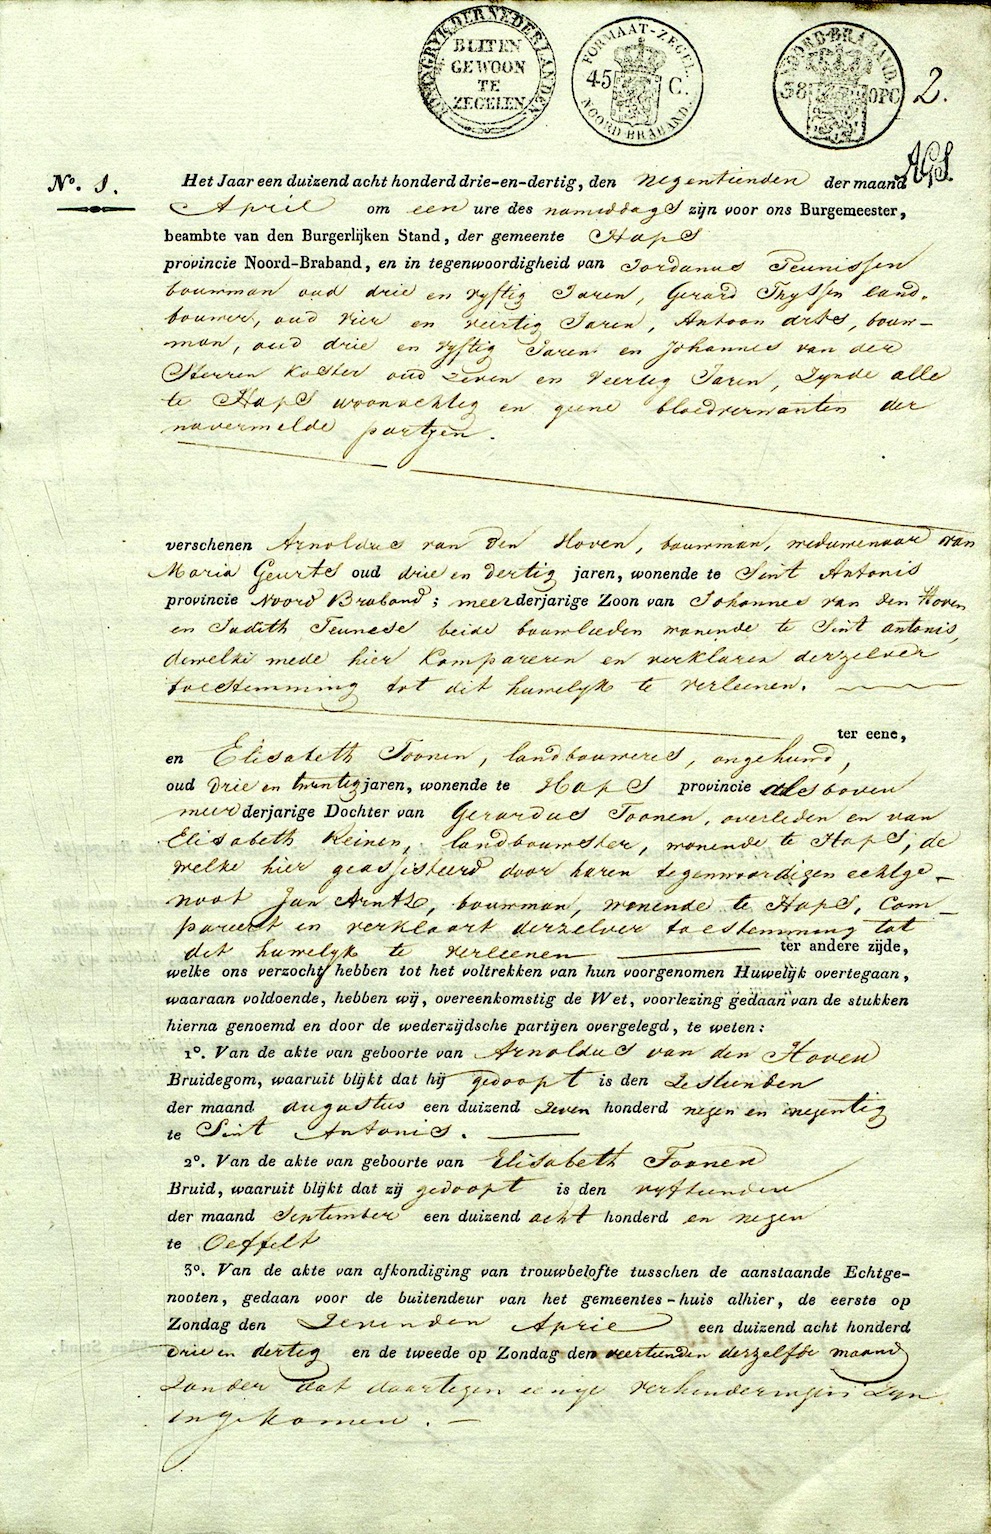 KONINGRYK DER NEDERLANDEN
BUITEN
GEWOON
TE
ZEGELEN
FORMAAT-ZEGEL.
45 C.
NOORD-BRABAND.
NOORD-BRABAND.
38 OPC
2.
AGS.
No. 1.
Het Jaar een duizend acht honderd drie-en-dertig, den negentienden der maand
April om een ure des namiddags zijn voor ons Burgemeester,
beambte van den Burgerlijken Stand, der gemeente Haps
provincie Noord-Braband, en in tegenwoordigheid van Jordanus Teunissen
bouwman oud drie en vyftig Jaren, Gerard Thyssen land-
bouwer, oud vier en veertig Jaren, Antoon Arts, bouw-
man, oud drie en vyftig Jaren en Johannes van der
Sterren Koster oud zeven en veertig Jaren, Zynde alle
te Haps woonachtig en geene bloedverwanten der
navermelde partyen.
verschenen Arnoldus van den Hoven, bouwman, weduwenaar van
Maria Geurts oud drie en dertig jaren, wonende te Sint Antonis
provincie Noord Braband; meerderjarige Zoon van Johannes van den Hoven
en Judith Teunese beide bouwlieden wonende te Sint antonis,
dewelke mede hier Kompareren en verklaren derzelver
toestemming tot dit huwelyk te verleenen.
ter eene,
en Elisabeth Toonen, landbouweres, ongehuwd,
oud drie en twintig jaren, wonende te Haps provincie als boven
meerderjarige Dochter van Gerardus Toonen, overleden en van
Elisabeth Reinen, landbouwster, wonende te Haps, de
welke hier geassisteerd door haren tegenwoordigen echtge-
noot Jan Arntz, bouwman, wonende te Haps, Com-
pareert en verklaart derzelver toestemming tot
dit huwelyk te verleenen ter andere zijde,
welke ons verzocht hebben tot het voltrekken van hun voorgenomen Huwelijk overtegaan,
waaraan voldoende, hebben wij, overeenkomstig de Wet, voorlezing gedaan van de stukken
hierna genoemd en door de wederzijdsche partijen overgelegd, te weten:
1o. Van de akte van geboorte van Arnoldus van den Hoven
Bruidegom, waaruit blijkt dat hij gedoopt is den Zestienden
der maand augustus een duizend zeven honderd negen en negentig
te Sint Antonis.
2o. Van de akte van geboorte van Elisabeth Toonen
Bruid, waaruit blijkt dat zij gedoopt is den vyftienden
der maand September een duizend acht honderd en negen
te Oeffelt
3o. Van de akte van afkondiging van trouwbelofte tusschen de aanstaande Echtge-
nooten, gedaan voor de buitendeur van het gemeentes-huis alhier, de eerste op
Zondag den Zevenden April een duizend acht honderd
drie en dertig en de tweede op Zondag den veertienden derzelfde maand
Zonder dat daartegen eenige verhinderingen zyn
ingekomen.